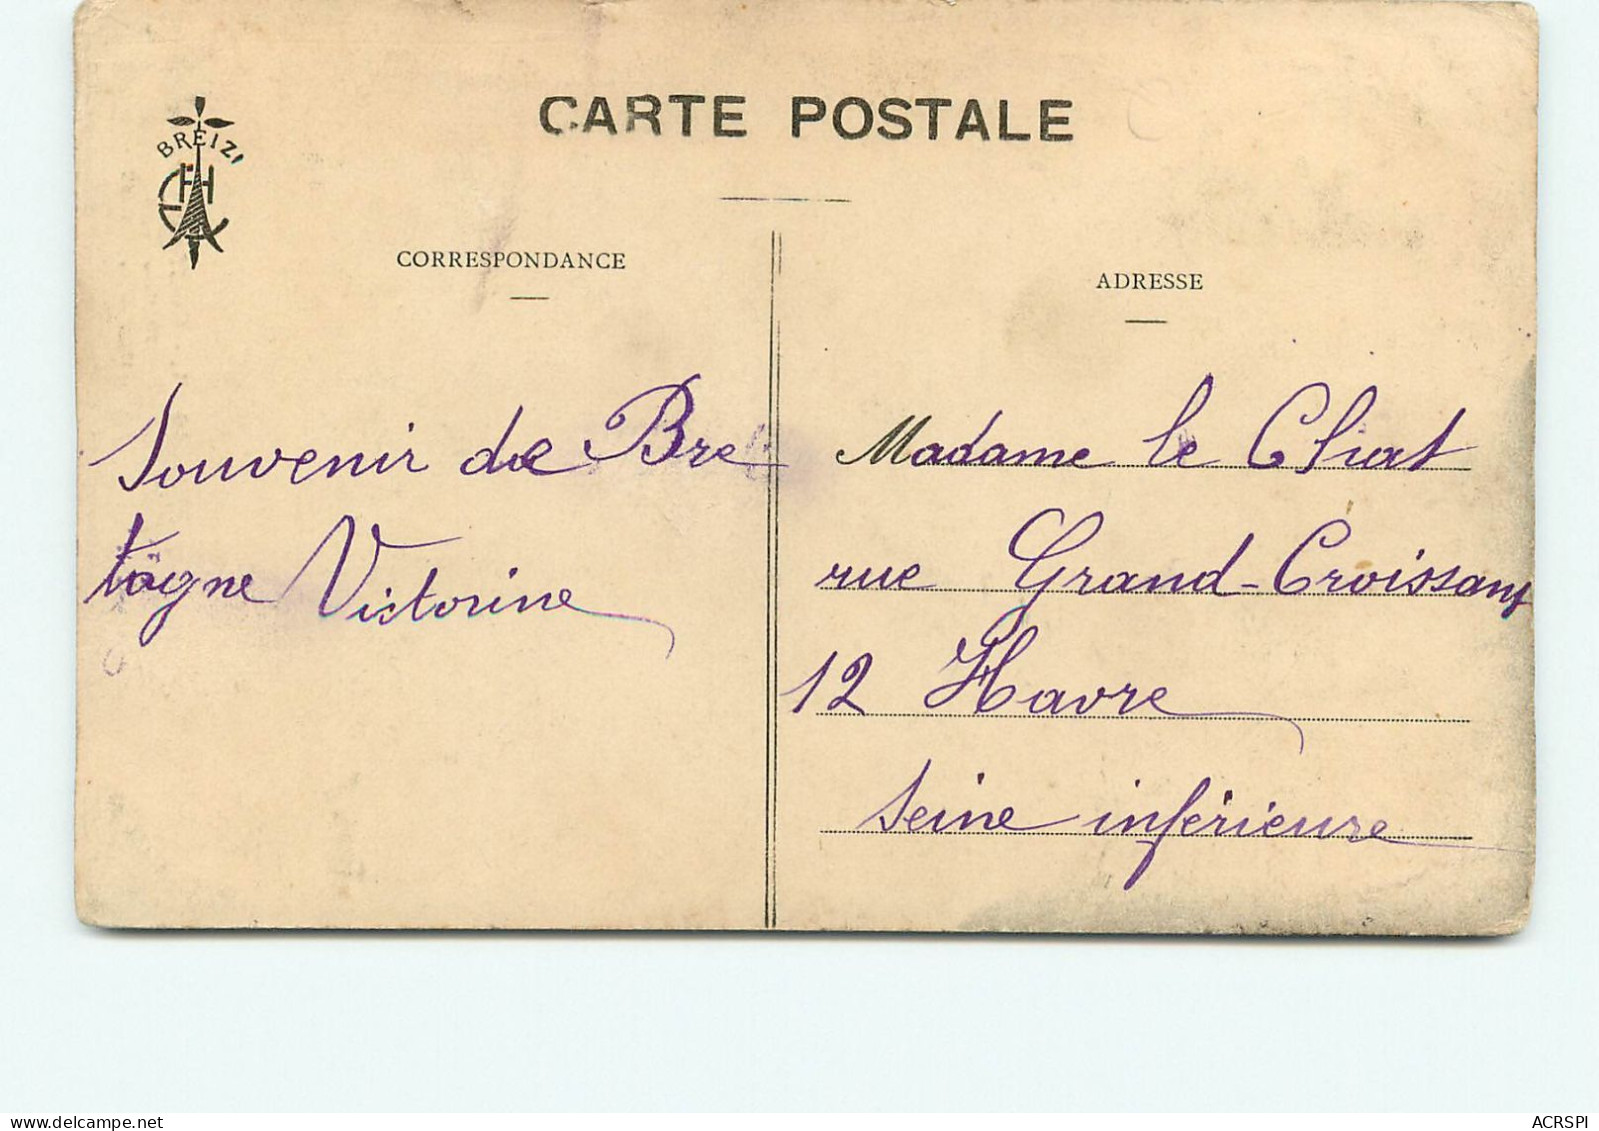 CARTE POSTALE
BREIZ
CORRESPONDANCE
ADRESSE
Souvenir de Bre
tagne Victorine
Madame le
rue Grand-Croissant
12 Havre
Seine inférieure
http://www.delcampe.net
ACRSPI